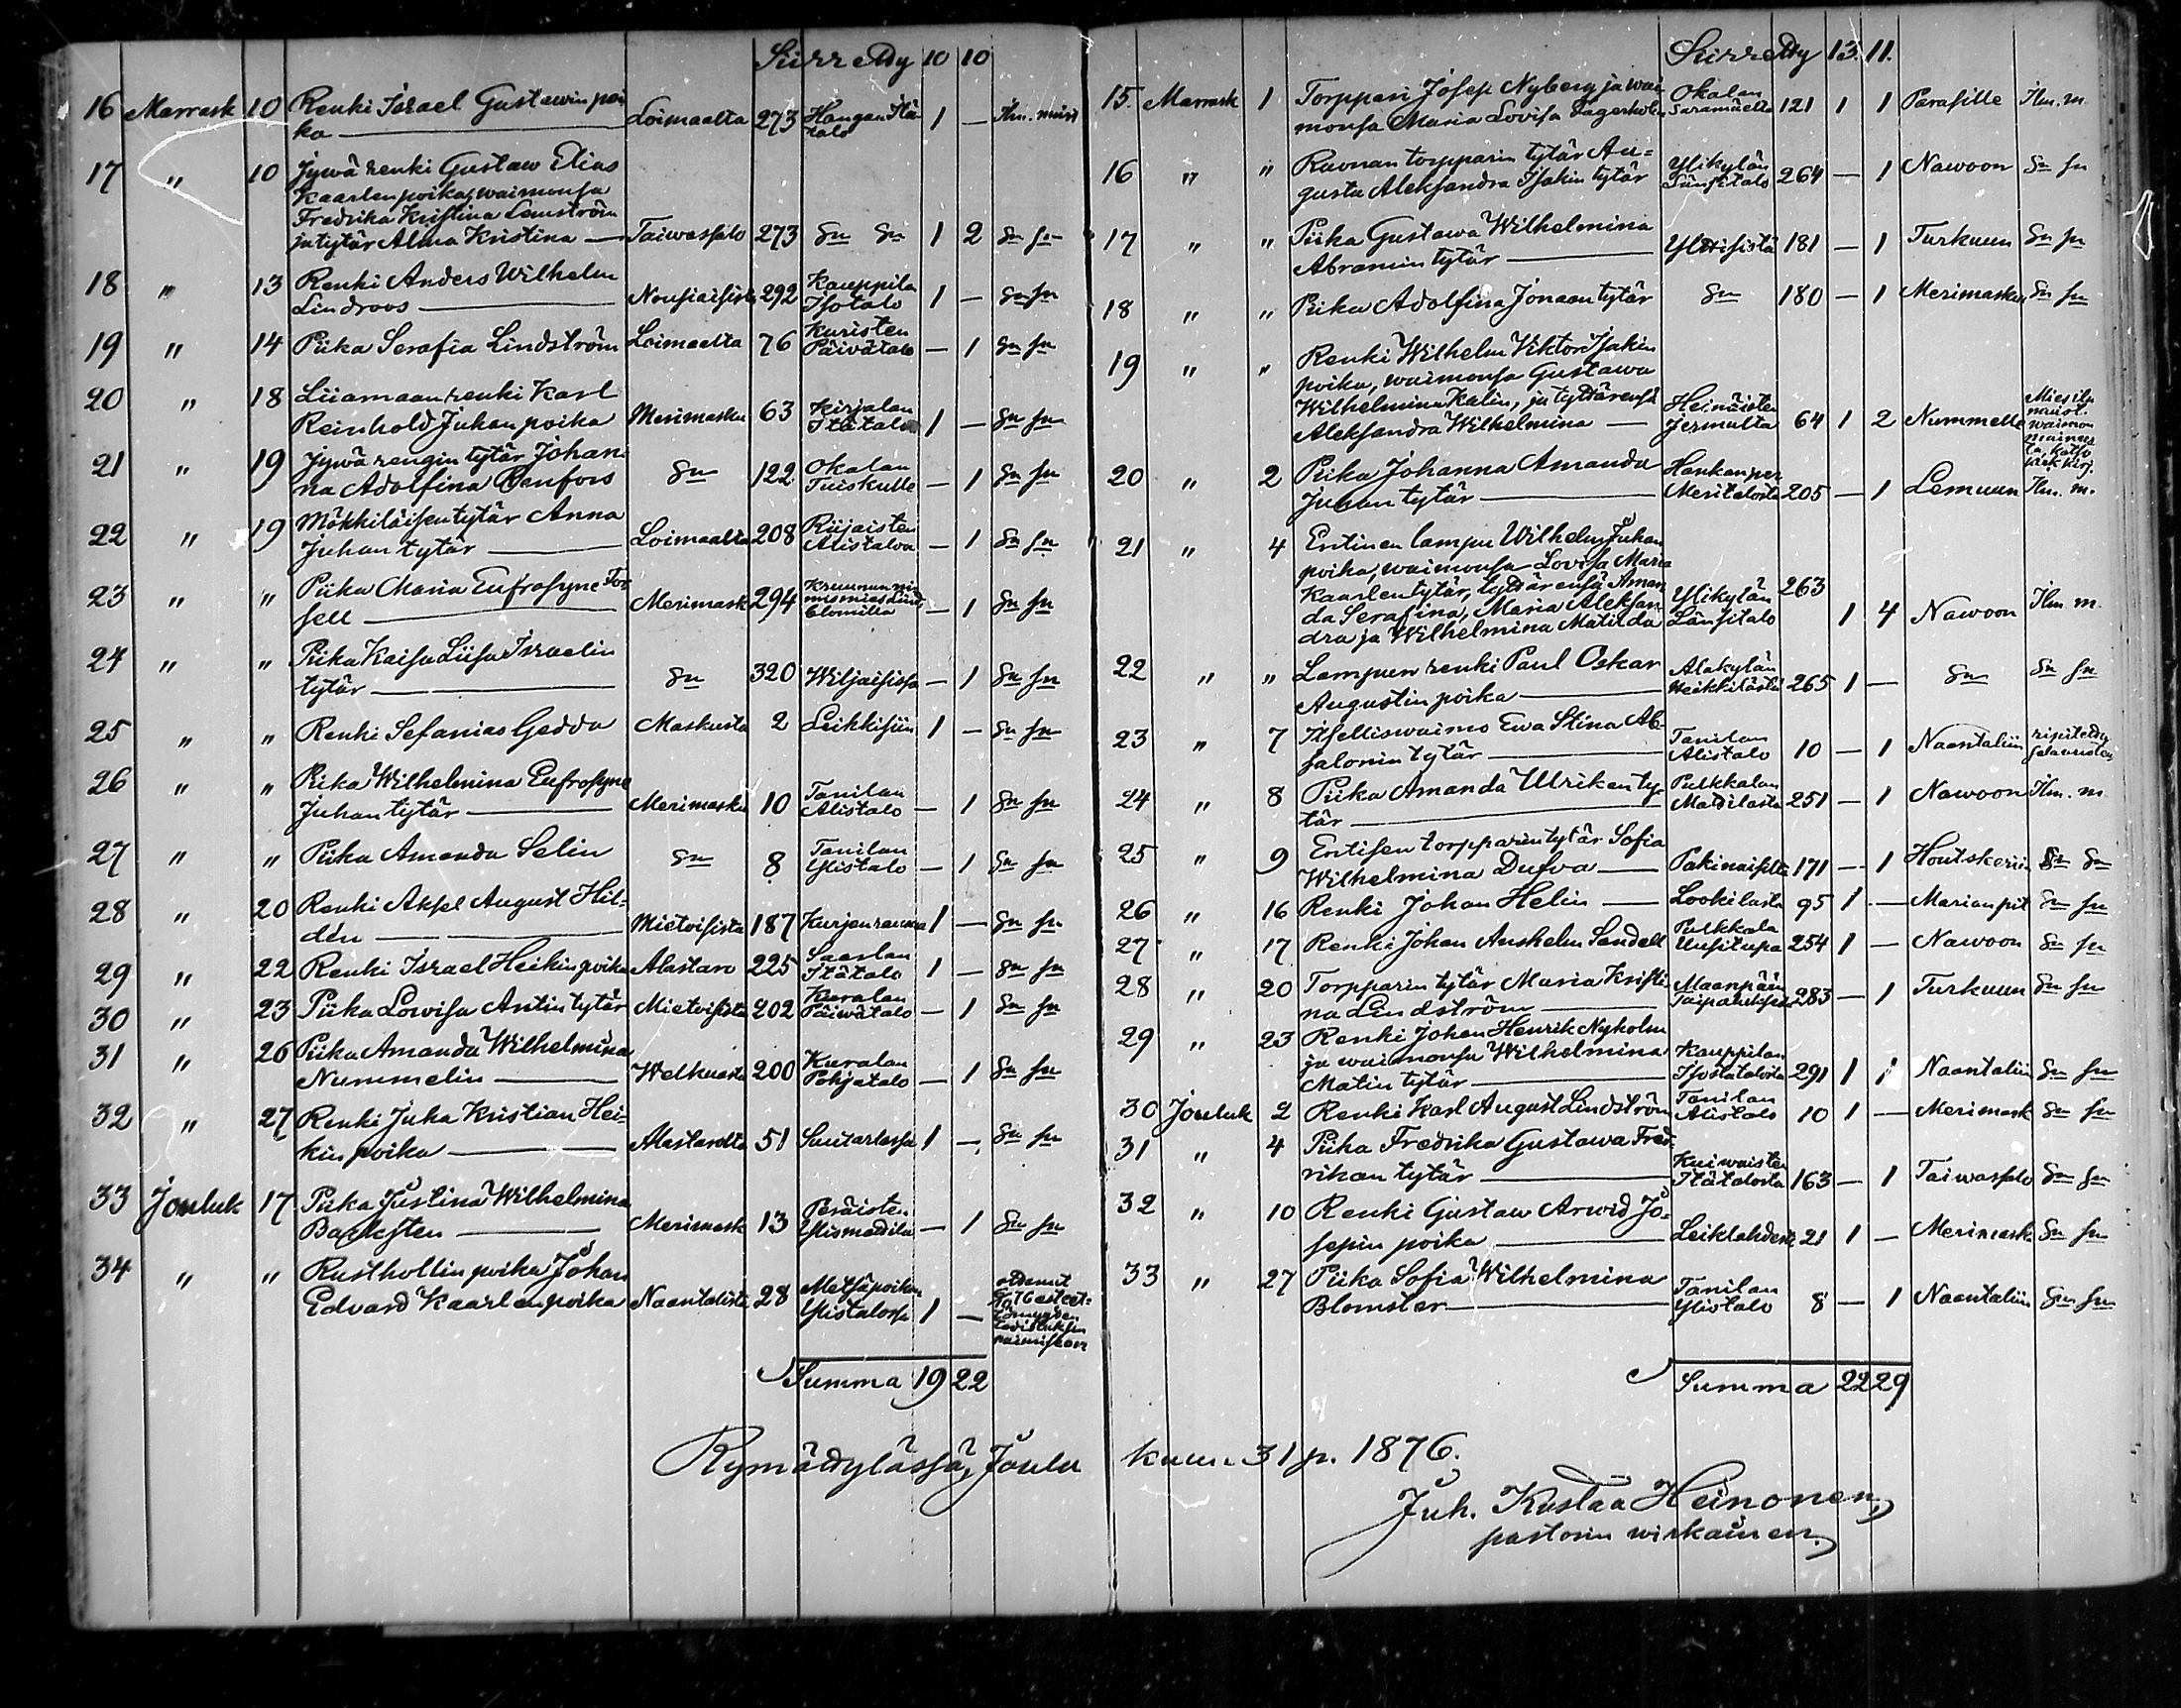 Siirretty 10 10
16 Marrask 10 Renki Israel Gustawin poi
ka — Loimaalta 273 Haugan Itä
talo 1 — Ilm. muist
17 " 10 Jywä renki Gustaw Elias
Kaarlen poika, waimonsa
Fredrika Kristina Lemström
ja tytär Alma Kristina — Taiwassalo 273 Sn Sn 1 2 Sn sn
18 " 13 Renki Anders Wilhelm
Lindroos — Nousiaisista 292 Kauppila
Isotalo 1 — Sn sn
19 " 14 Piika Serafia Lindström Loimaalta 76 Kuristen
Päivätalo — 1 Sn sn
20 " 18 Liiamaan renki Karl
Reinhold Juhan poika Merimasku 63 Kirjalan
Itätalo 1 — Sn sn
21 " 19 Jywä rengin tytär Johan
na Adolfina Renfors Sn 122 Okalan
Tuiskulle — 1 Sn sn
22 " 19 Mökkiläisen tytär Anna
Juhan tytär — Loimaalta 208 Riijaisten
Alistaloa — 1 Sn sn
23 " " Piika Maria Eufrosyne For
sell — Merimask 294 — 1 Sn sn
24 " " Piika Kaisa Liisa Israelin
tytär — Sn 320 Wiljaisissa — 1 Sn sn
25 " " Renki Sefanias Gedda Maskusta 2 Leikkisiin 1 — Sn sn
26 " " Piika Wilhelmina Eufrosyne
Juhan tytär — Merimasku 10 Tanilan
Alistalo — 1 Sn sn
27 " " Piika Amanda Selin Sn 8 Tanilan
Ylistalo — 1 Sn sn
28 " 20 Renki Aksel August Hil=
dén — Mietoisista 187 Kurjenrauma 1 — Sn sn
29 " 22 Renki Israel Heikin poika Alastaro 225 Saarlan
Itätalo 1 — Sn sn
30 " 23 Piika Lowisa Antin tytär Mietoisista 202 Kuralan
Päiwätalo — 1 Sn sn
31 " 26 Piika Amanda Wilhelmina
Nummelin — Welkuasta 200 Kuralan
Pohjatalo — 1 Sn sn
32 " 27 Renki Juha Kristian Hei=
kin poika — Alastarolta 51 Sautarlassa 1 — Sn sn
33 Jouluk 17 Piika Justina Wilhelmina
Backsten — Merimask 13 Peräisten
Ylismattila — 1 Sn sn
34 " " Rusthollin poika Johan
Edvard Kaarlen poika Naantalista 28 Metsäpoikan
Ylistalossa 1 —
Summa 19 22
Siirretty 13. 11.
15. Marrask 1 Torppari Josep Nyberg ja wai
monsa Maria Lovisa Lagerholm Okalan
Saramäelta 121 1 1 Parasille Ilm. m.
16 " " Raonan torpparin tytär Au=
gusta Aleksandra Isakin tytär Ylikylän
Länsitalo 264 — 1 Nawoon Sn sn
17 " " Piika Gustawa Wilhelmina
Abramin tytär — Ylttisistä 181 — 1 Turkuun Sn sn
18 " " Piika Adolfina Jonaan tytär Sn 180 — 1 Merimasku Sn sn
19 " " Renki Wilhelm Viktor Isakin
poika, waimonsa Gustawa
Wilhelmina Kalin, ja tyttärensä
Aleksandra Wilhelmina — Heinäisten
Jermulta 64 1 2 Nummelle
20 " 2 Piika Johanna Amanda
Juhan tytär — Haukanper
Meritalosta 205 — 1 Lemuun Ilm. m.
21 " 4 Entinen lampu Wilhelm Juhan
poika, waimonsa Lovisa Maria
Kaarlen tytär, tyttärensä Aman
da Serafina, Maria Aleksan
dra ja Wilhelmina Matilda Ylikylän
Länsitalo 263 1 4 Nawoon Ilm m.
22 " " Lampun renki Paul Oskar
Augustin poika — Alakylän
Heikkilästä 265 1 — Sn Sn sn
23 " 7 Itselliswaimo Ewa Stina Ab
salonin tytär — Tanilan
Alistalo 10 — 1 Naantaliin
24 " 8 Piika Amanda Ulrikan ty
tär — Pulkkalan
Mattilasta 251 — 1 Nawoon Ilm. m
25 " 9 Entisen torpparin tytär Sofia
Wilhelmina Dufva — Pakinaisilta 171 — 1 Houtskeriin Sn Sn
26 " 16 Renki Johan Helin — Lookilasta 95 1 — Marian pit Sn sn
27 " 17 Renki Johan Anshelm Sandell Pulkkala
Uusitupa 254 1 — Nawoon Sn sn
28 " 20 Torpparin tytär Maria Kristi
na Lindström — Maanpään
283 — 1 Turkuun Sn sn
29 " 23 Renki Johan Henrik Nyholm
ja waimonsa Wilhelmina
Matin tytär — Kauppilan
Isostatalosta 291 1 1 Naantaliin Sn sn
30 Jouluk 2 Renki Karl August Lindström Tanilan
Alistalo 10 1 — Merimask Sn sn
31 " 4 Piika Fredrika Gustawa Fred
rikan tytär — Kuiwaisten
Itätalosta 163 — 1 Taiwassalo Sn sn
32 " 10 Renki Gustaw Arwid Jo=
sepin poika — Leiklahdest 21 1 — Merimask Sn sn
33 " 27 Piika Sofia Wilhelmina
Blomster — Tanilan
Ylistalo 8 — 1 Naantaliin Sn sn
Summa 22 29
Rymättylässä, Joulu kuun 31 p. 1876.
Juh. Kustaa Heinonen,
pastorin wirkainen.